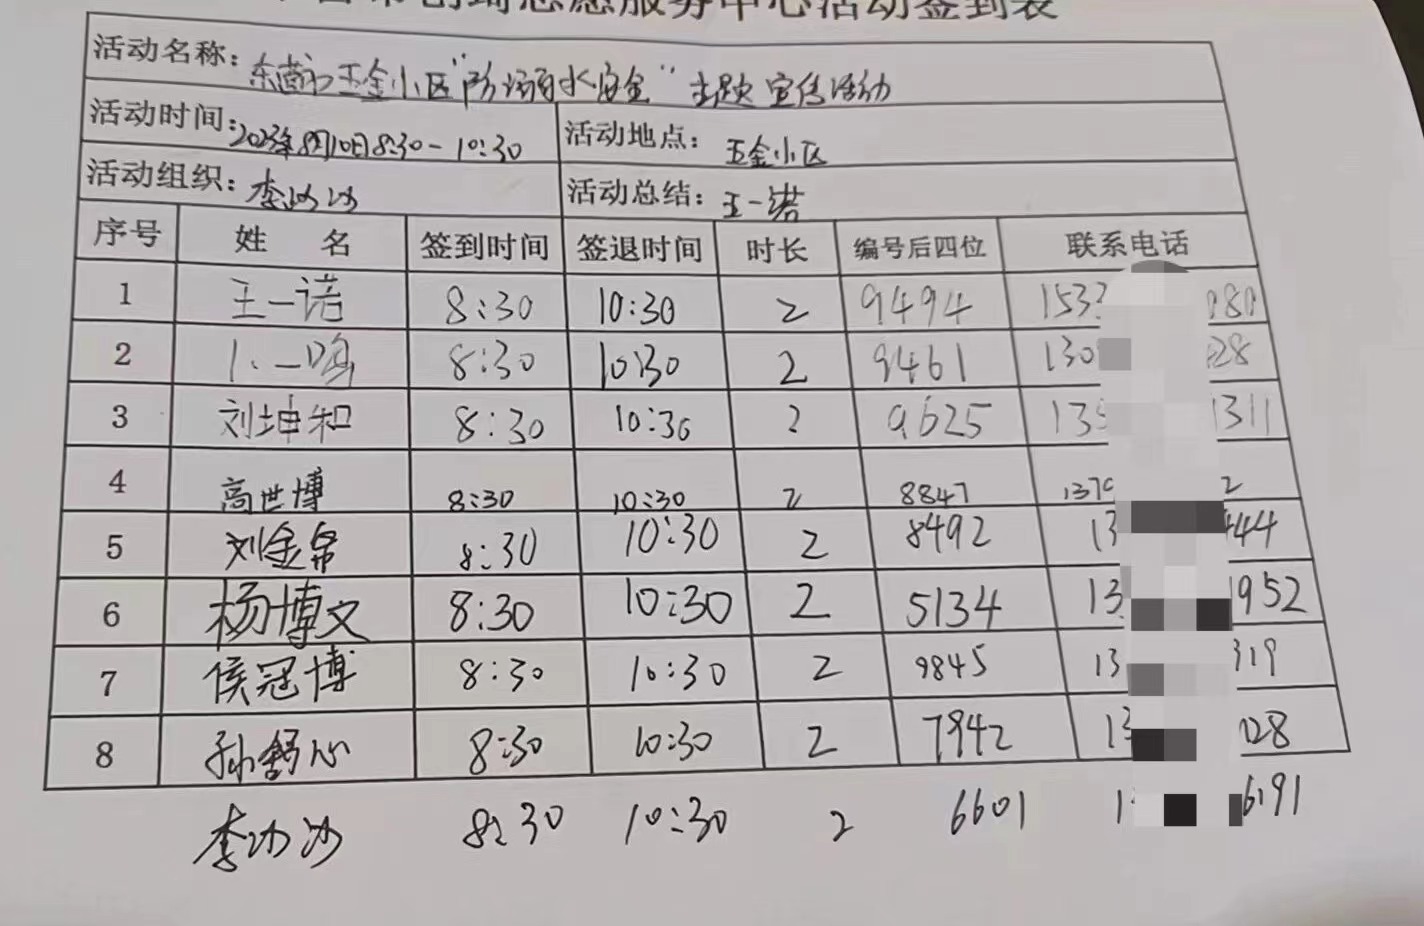 服务中心活动签到表
活动名称：小区"防溺水安全"主题宣传活动
活动时间：2023年8月10日8:30-10:30 活动地点：五金小区
活动组织：李沙沙 活动总结：王一诺
序号 姓 名 签到时间 签退时间 时长 编号后四位 联系电话
1 王一诺 8:30 10:30 2 9494 153 080
2 一鸣 8:30 10:30 2 9461 130 28
3 刘坤和 8:30 10:30 2 9625 13 1311
4 高世博 8:30 10:30 2 8847 137 2
5 刘金帛 8:30 10:30 2 8492 13 444
6 杨博文 8:30 10:30 2 5134 13 1952
7 侯冠博 8:30 10:30 2 9845 13 319
8 孙舒心 8:30 10:30 2 7942 13 028
李沙沙 8:30 10:30 2 6601 1 6191